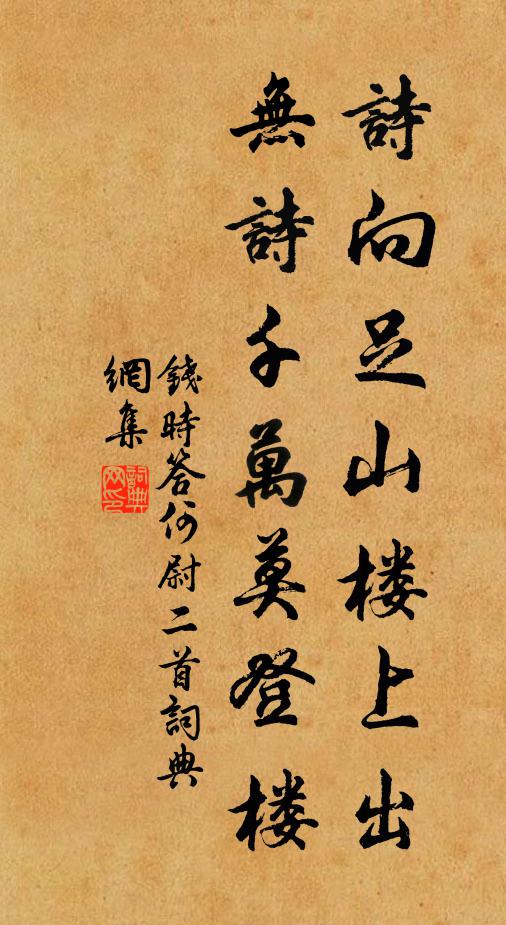 詩向足山楼上出
無詩千萬莫登楼
錢時答何尉二首詞典
網集
詞典網印